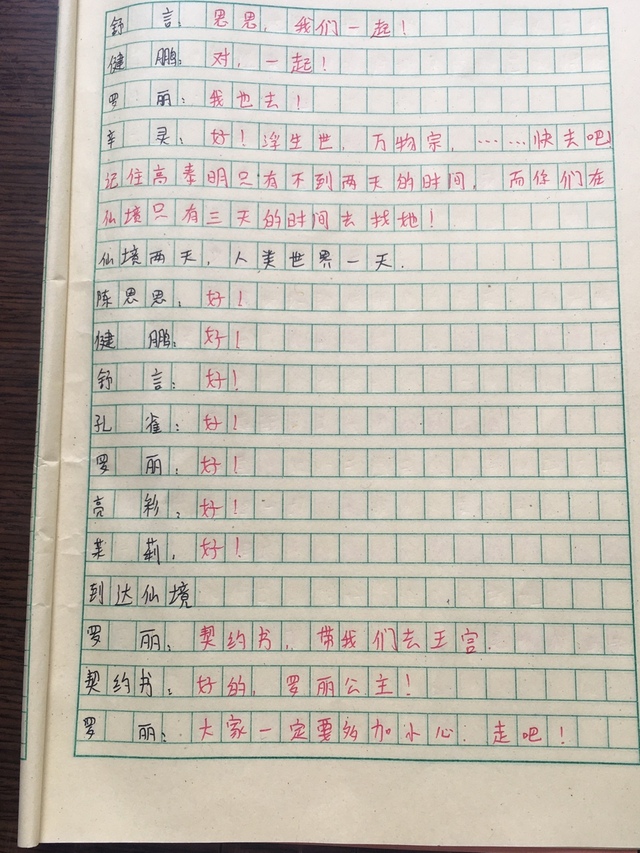 舒言：思思，我们一起！
健鹏：对，一起！
罗丽：我也去！
辛灵：好！浮生世，万物宗，……快去吧！
记住高泰明只有不到两天的时间，而你们在
仙境只有三天的时间去找她！
仙境两天，人类世界一天．
陈思思：好！
健鹏：好！
舒言：好！
孔雀：好！
罗丽：好！
亮彩：好！
茉莉：好！
到达仙境
罗丽：契约书，带我们去王宫．
契约书：好的，罗丽公主！
罗丽：大家一定要多加小心．走吧！